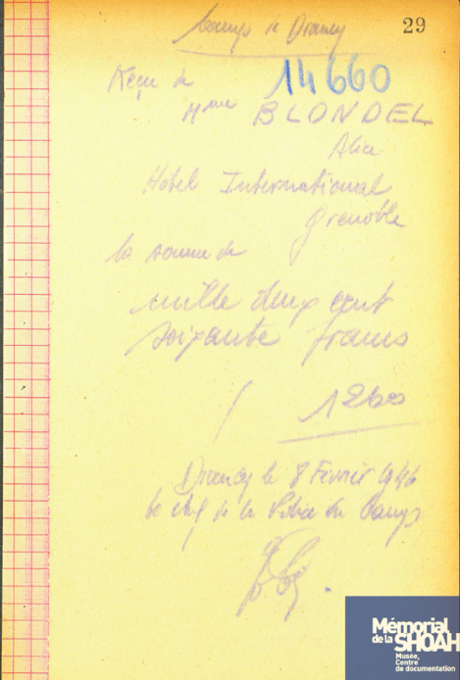 Camp de Drancy
29
14660
Reçu de
Mme BLONDEL
Alice
Hôtel International
Grenoble
la somme de
mille deux cent
soixante francs
1260
Drancy le 8 Février
Le chef de la Police du Camp
Mémorial
de la SHOAH
Musée,
Centre
de documentation